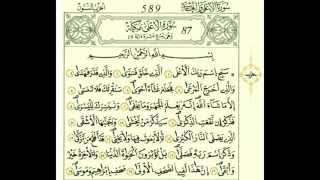 الحزب الستون 589 سورة الأعلى
سورة الأعلى مكية 87
بسم الله الرحمن الرحيم
سَبِّحِ اسْمَ رَبِّكَ الْأَعْلَى الَّذِي خَلَقَ فَسَوَّى وَالَّذِي قَدَّرَ فَهَدَى
وَالَّذِي أَخْرَجَ الْمَرْعَى فَجَعَلَهُ غُثَاءً أَحْوَى سَنُقْرِئُكَ فَلَا تَنسَى
إِلَّا مَا شَاءَ اللَّهُ إِنَّهُ يَعْلَمُ الْجَهْرَ وَمَا يَخْفَى وَنُيَسِّرُكَ لِلْيُسْرَى
فَذَكِّرْ إِن نَّفَعَتِ الذِّكْرَى سَيَذَّكَّرُ مَن يَخْشَى وَيَتَجَنَّبُهَا الْأَشْقَى
الَّذِي يَصْلَى النَّارَ الْكُبْرَى ثُمَّ لَا يَمُوتُ فِيهَا وَلَا يَحْيَى قَدْ أَفْلَحَ مَن تَزَكَّى
وَذَكَرَ اسْمَ رَبِّهِ فَصَلَّى بَلْ تُؤْثِرُونَ الْحَيَاةَ الدُّنْيَا وَالْآخِرَةُ خَيْرٌ
وَأَبْقَى إِنَّ هَذَا لَفِي الصُّحُفِ الْأُولَى صُحُفِ إِبْرَاهِيمَ وَمُوسَى